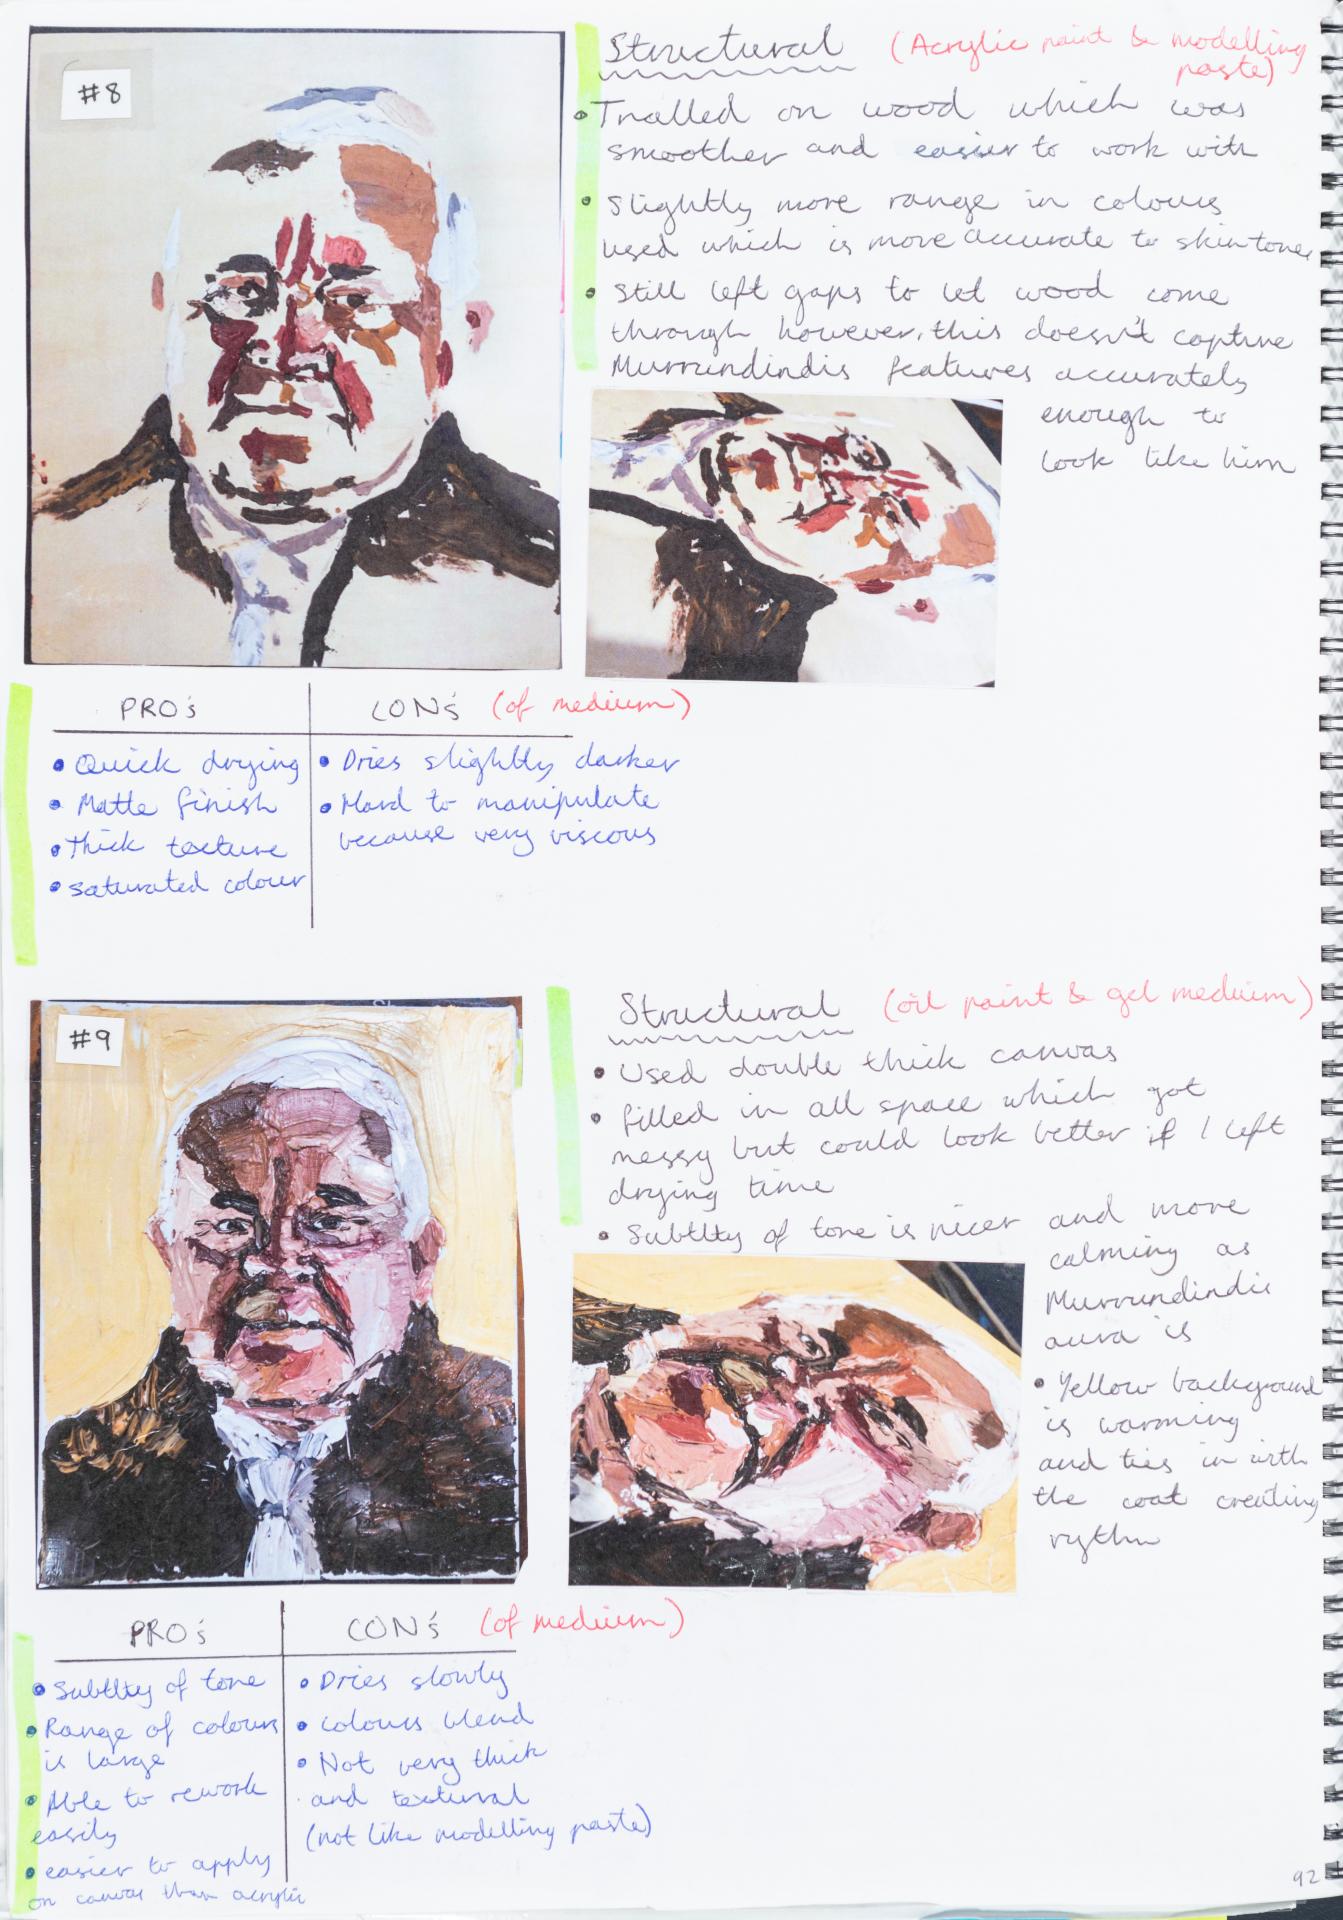 #8
Structural (Acrylic paint & modelling
paste)
• Trialled on wood which was
smoother and easier to work with
• Slightly more range in colours
used which is more accurate to skin tone
• Still left gaps to let wood come
through however, this doesn't capture
Murrundindis features accurately
enough to
look like him
PRO's
• Quick drying
• Matte finish
• Thick texture
• saturated colour
CON's (of medium)
• Dries slightly darker
• Hard to manipulate
because very viscous
#9
Structural (oil paint & gel medium)
• Used double thick canvas
• filled in all space which got
messy but could look better if I left
drying time
• Subtlty of tone is nicer and more
calming as
Murrundindis
aura is
• Yellow background
is warming
and ties in with
the coat creating
rythm
PRO's
• Subtlty of tone
• Range of colours
is large
• Able to rework
easily
• easier to apply
on canvas than acrylic
CON's (of medium)
• Dries slowly
• colours blend
• Not very thick
and textural
(not like modelling paste)
92